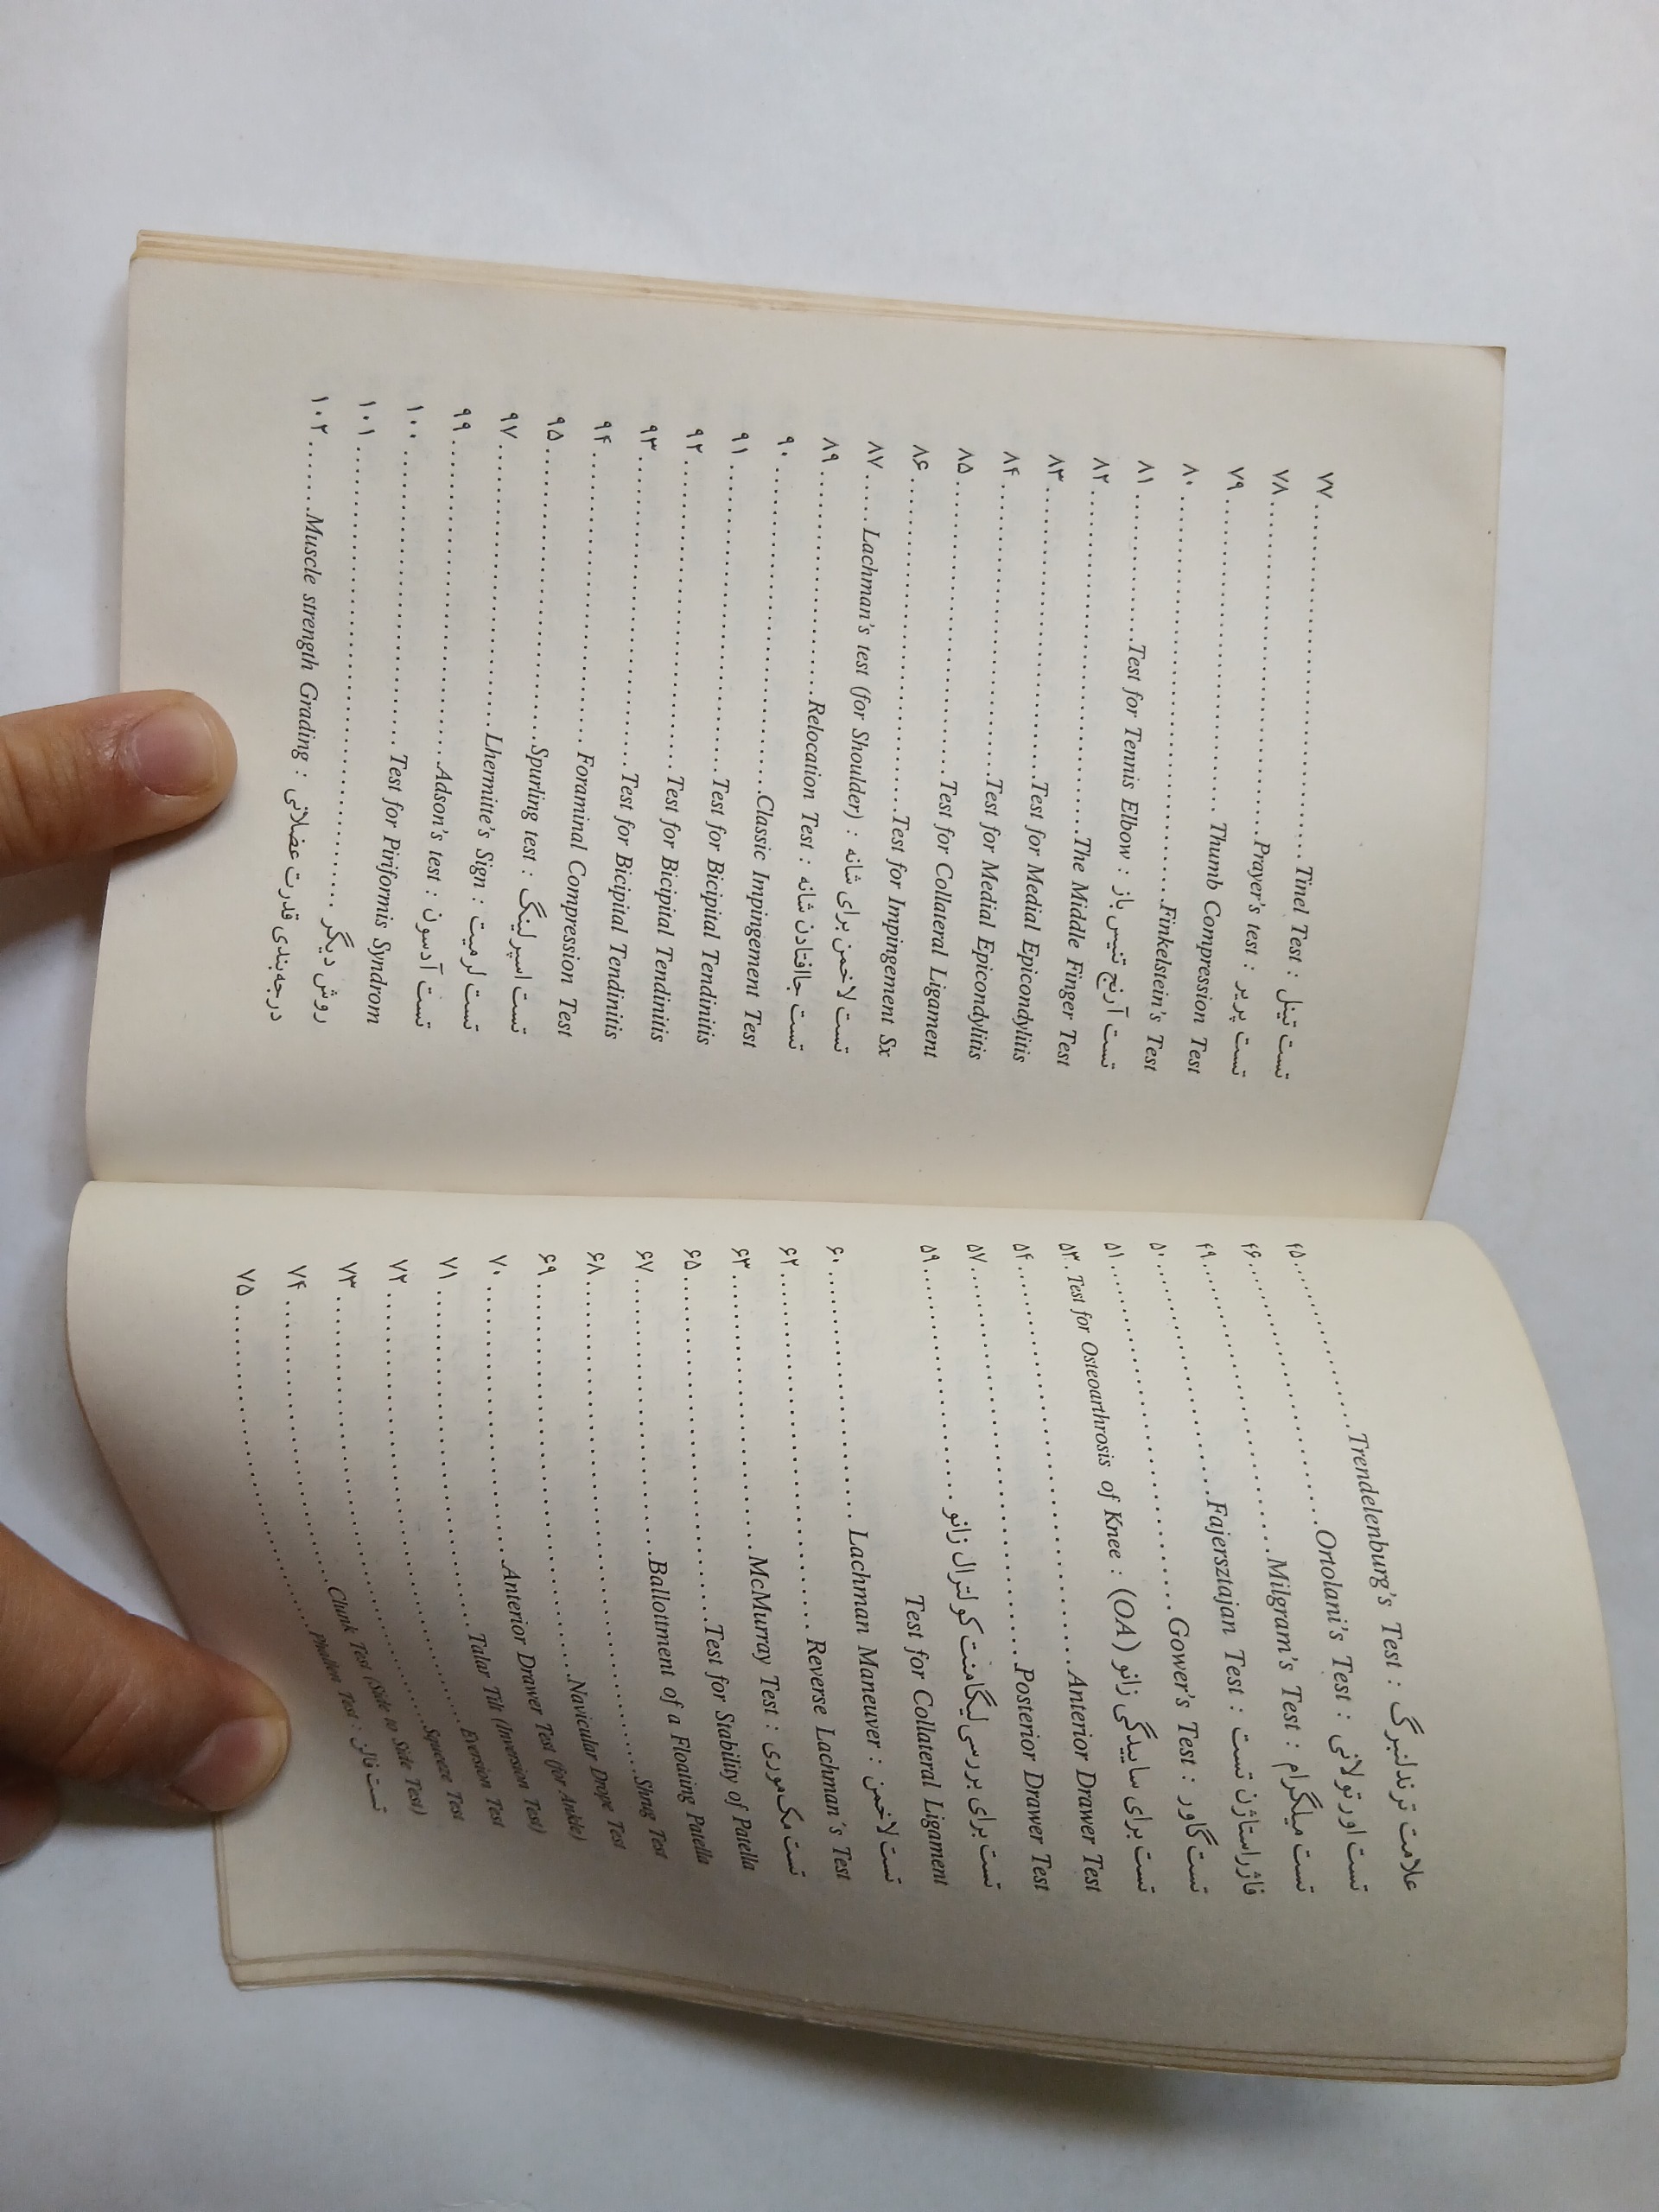 علامت ترندلنبرگ : Trendelenburg's Test ........ ۴۵
تست اورتولانی : Ortolani's Test ........ ۴۶
تست میلگرام : Milgram's Test ........ ۴۹
فاژراستاژن تست : Fajersztajan Test ........ ۵۰
تست گاور : Gower's Test ........ ۵۱
تست برای ساییدگی زانو (OA) : Test for Osteoarthrosis of Knee . ۵۳
Anterior Drawer Test ........ ۵۴
Posterior Drawer Test ........ ۵۷
تست برای بررسی لیگامنت کولترال زانو ........ ۵۹
Test for Collateral Ligament
تست لاخمن : Lachman Maneuver ........ ۶۰
Reverse Lachman's Test ........ ۶۲
تست مک‌موری : McMurray Test ........ ۶۳
Test for Stability of Patella ........ ۶۵
Ballottment of a Floating Patella ........ ۶۷
Shrug Test ........ ۶۸
Navicular Drope Test ........ ۶۹
Anterior Drawer Test (for Ankle) ........ ۷۰
Talar Tilt (Inversion Test) ........ ۷۱
Eversion Test ........ ۷۲
Squeeze Test ........ ۷۳
Clunk Test (Side to Side Test) ........ ۷۴
تست فالن : Phallen Test ........ ۷۵
تست تینل : Tinel Test ........ ۷۷
تست پریر : Prayer's test ........ ۷۸
Thumb Compression Test ........ ۷۹
Finkelstein's Test ........ ۸۰
تست آرنج تنیس باز : Test for Tennis Elbow ........ ۸۱
The Middle Finger Test ........ ۸۲
Test for Medial Epicondylitis ........ ۸۳
Test for Medial Epicondylitis ........ ۸۴
Test for Collateral Ligament ........ ۸۵
Test for Impingement Sx ........ ۸۶
تست لاخمن برای شانه : Lachman's test (for Shoulder) .... ۸۷
تست جاافتادن شانه : Relocation Test ........ ۸۹
Classic Impingement Test ........ ۹۰
Test for Bicipital Tendinitis ........ ۹۱
Test for Bicipital Tendinitis ........ ۹۲
Test for Bicipital Tendinitis ........ ۹۳
Foraminal Compression Test ........ ۹۴
تست اسپرلینگ : Spurling test ........ ۹۵
تست لرمیت : Lhermitte's Sign ........ ۹۷
تست آدسون : Adson's test ........ ۹۹
Test for Piriformis Syndrom ........ ۱۰۰
روش دیگر ........ ۱۰۱
درجه‌بندی قدرت عضلانی : Muscle strength Grading ....... ۱۰۲